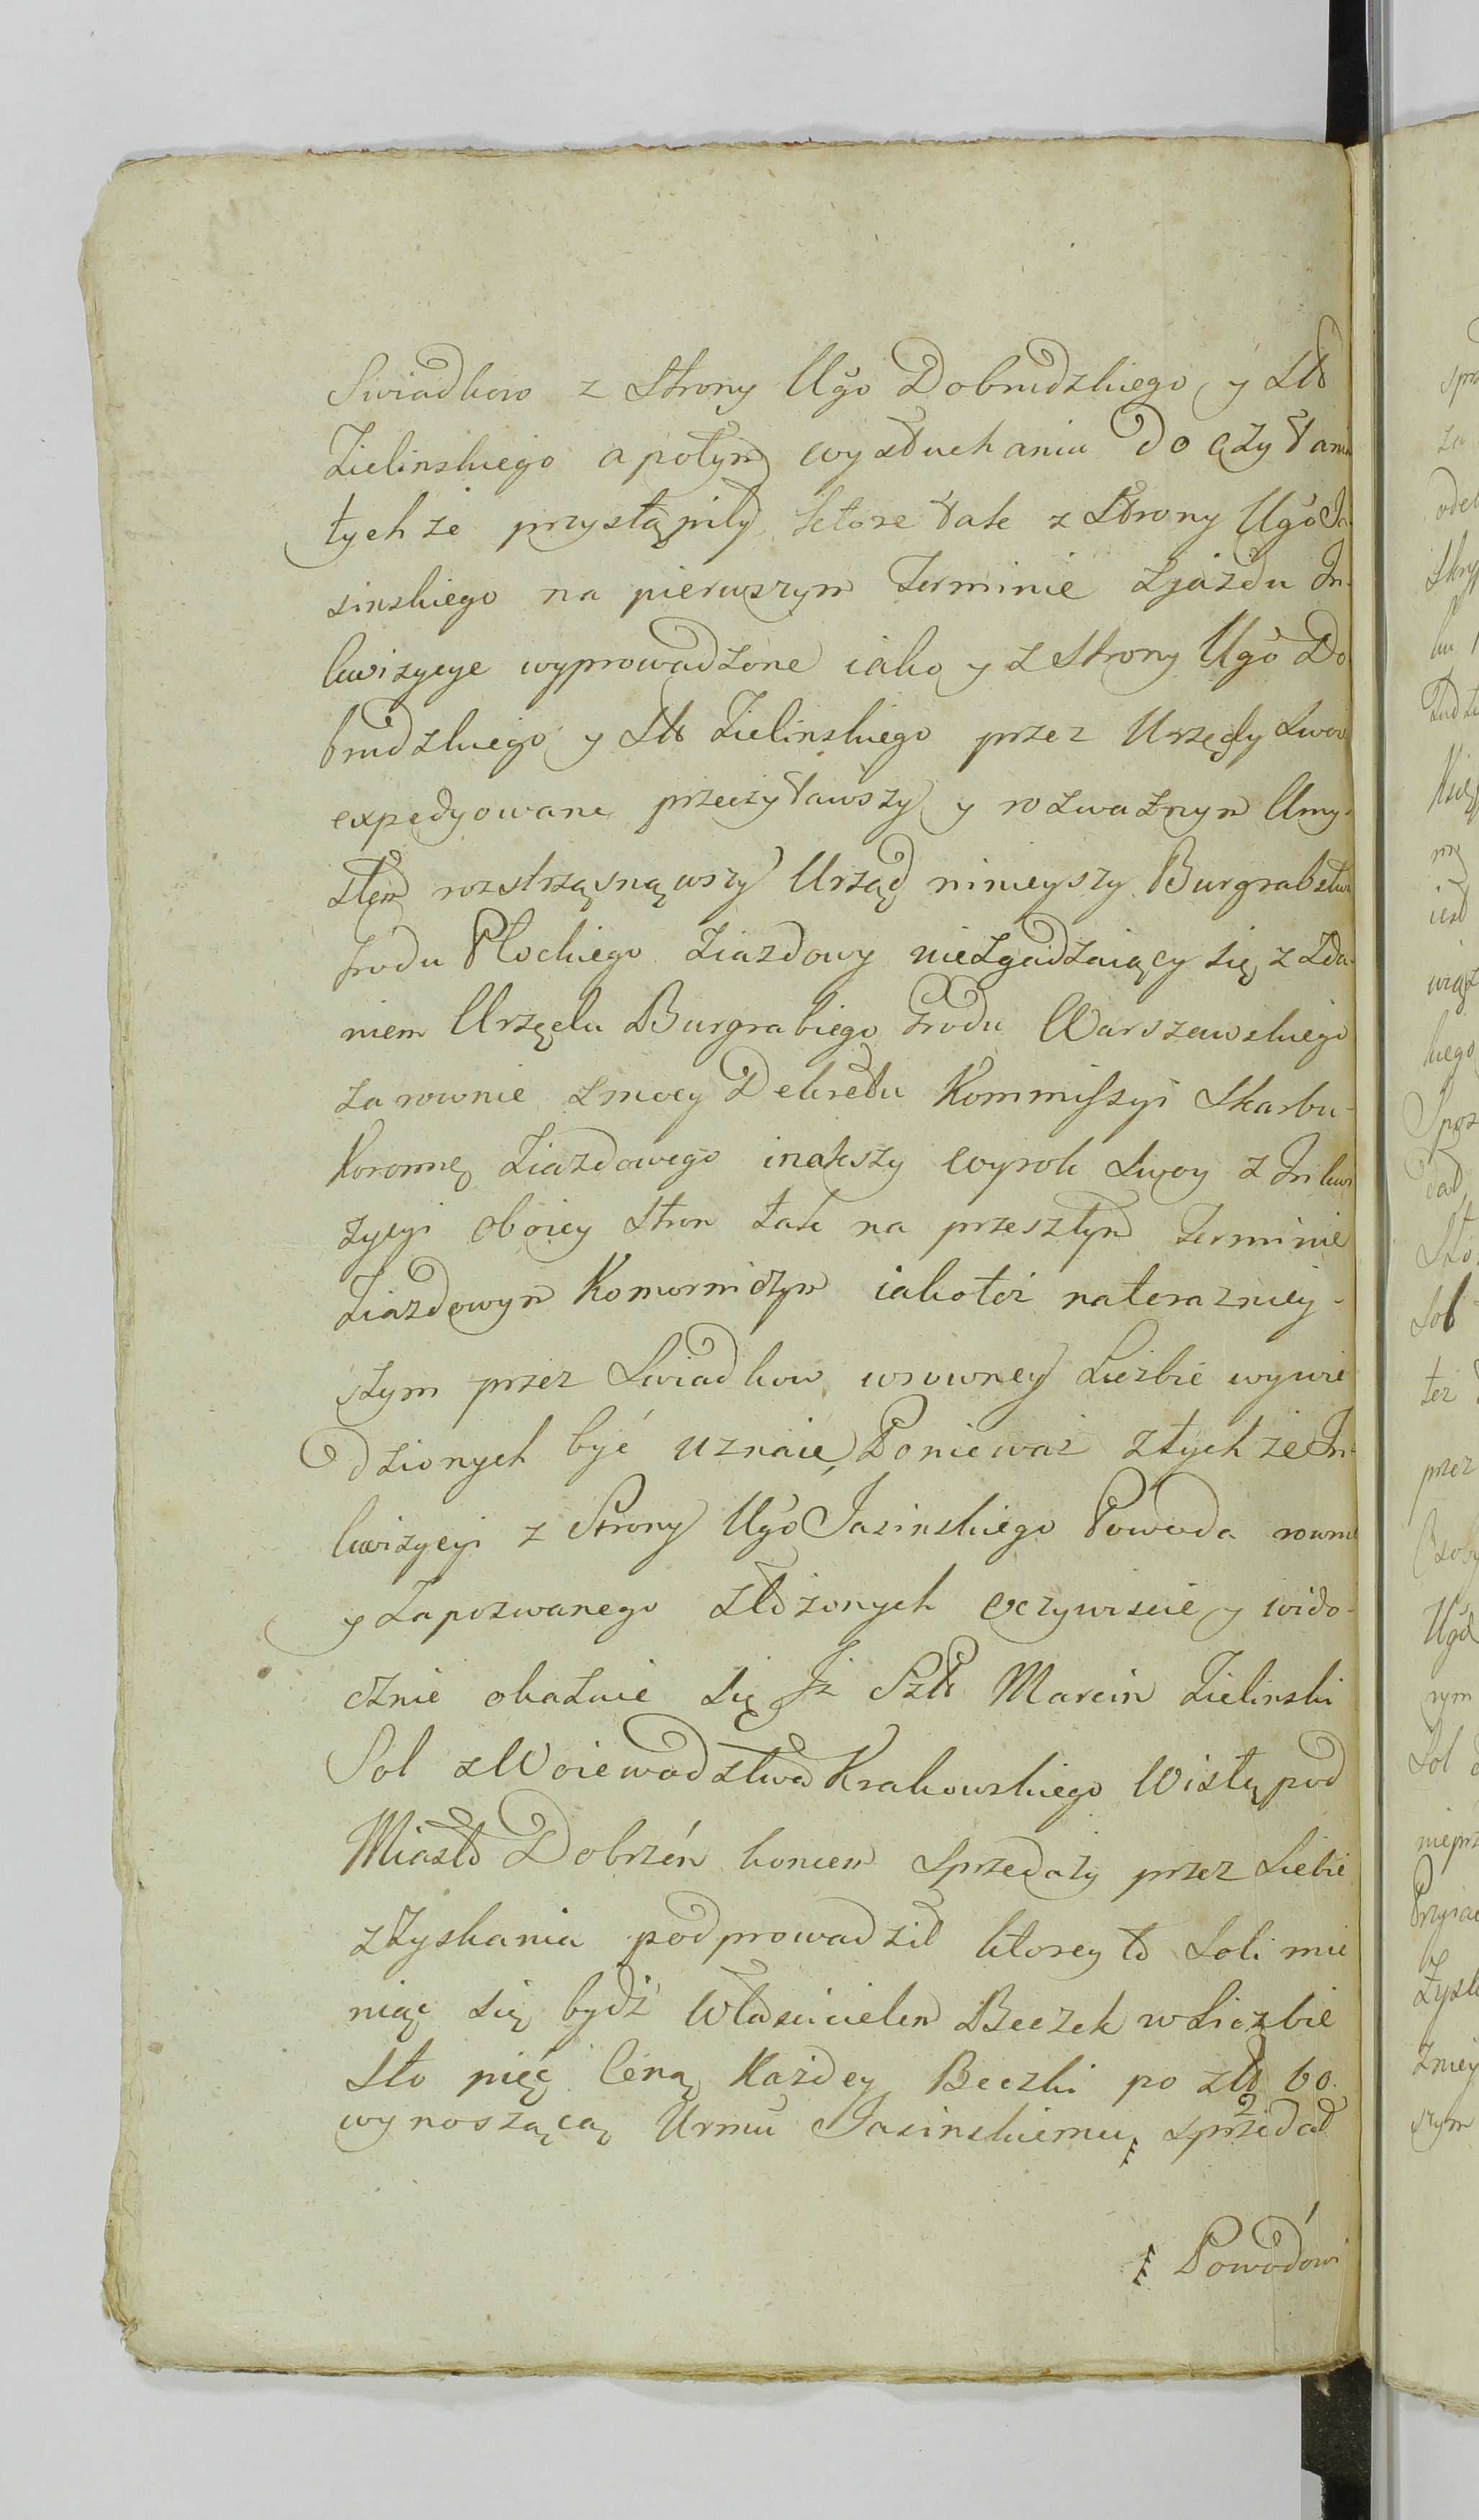 Swiadkow z Strony Ugo Dobrudzkiego y Sł
Zielinskiego apotym wysłuchaniu Do czytania
tychże przystąpiły, które tak z Strony Ugo Ja
sinskiego na pierwszym Terminie Zjazdu In-
kwizycye wyprowadzone iako y z Strony Ugo Do
brudzkiego y Sł Zielinskiego przez Urzędy Swoie
expedyowane przeczytawszy y rozważnym Umy-
słem rozstrząsnąwszy Urząd ninieyszy Burgrabstwa
Grodu Płockiego Ziazdowy niezgadzaiący się z Zda-
niem Urzędu Burgrabiego Grodu Warszawskiego
zarownie zmocy Dekretu Kommissyi Skarbu
Koronne Ziazdowego inakszy wyrok Swoy z Inkwi
zycyi oboiey Stron tak na przeszłym Terminie
Ziazdowym Komorniczym iakoteż naterazniey-
szym przez Swiadkow wrowney Liczbie wywie
dzionych być uznaie, Ponieważ ztychże In-
kwizycyi z Strony Ugo Jasinskiego Powoda rowno
y Zapozwanego złożonych oczywiscie y wido-
cznie okazuie się Iż Szł Marcin Zielinski
Sol z Woiewodztwa Krakowskiego Wisłą pod
Miasto Dobrzeń koncem Sprzedaży przez Siebie
zyskania podprowadził ktorey to Soli mie
niąc się bydź Włascicielem Beczek w Liczbie
Sto pięć Ceną Każdey Beczki po zło 60.
wynoszącą Urmu Jasinskiemu, sprzedał
Powodowi